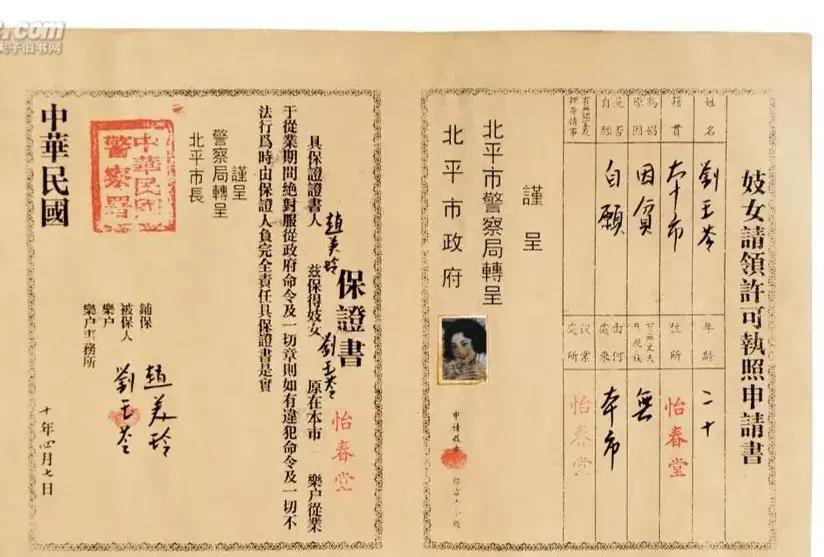 妓女請領許可執照申請書
姓名 劉玉苓 年齡 二十
籍貫 本市 住所 怡春堂
為娼原因 因貧 無
是否自願 自願 由何處來 本市
從業處所 怡春堂
謹呈
北平市警察局轉呈
北平市政府
保證書
具保證書人 趙美玲 茲保得妓女 劉玉苓 原在本市 怡春堂 樂户從業
于從業期間絶對服從政府命令及一切章則如有違犯命令及一切不
法行爲時由保證人負完全責任具保證書是實
謹呈
警察局轉呈
北平市長
中華民國
警察署
鋪保 趙美玲
被保人 劉玉苓
樂户
樂户事務所
十年四月七日
中華民國